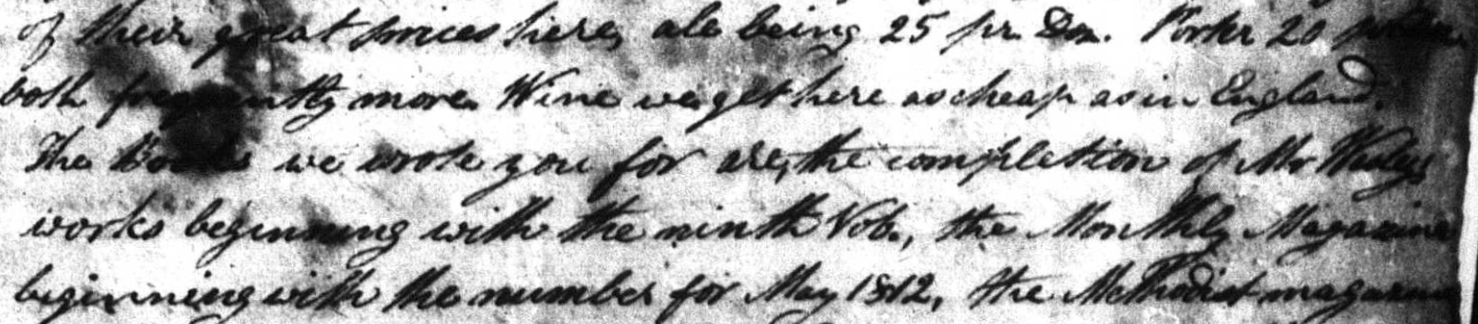 of their great prices here, ale being 25 pr. Doz. Porter 20
both frequently more. Wine we get here as cheap as in England.
The Books we wrote you for are, the completion of Mr Wesleys
works beginning with the ninth Vol., the Monthly Magazine
beginning with the number for May 1812, the Methodist magazine